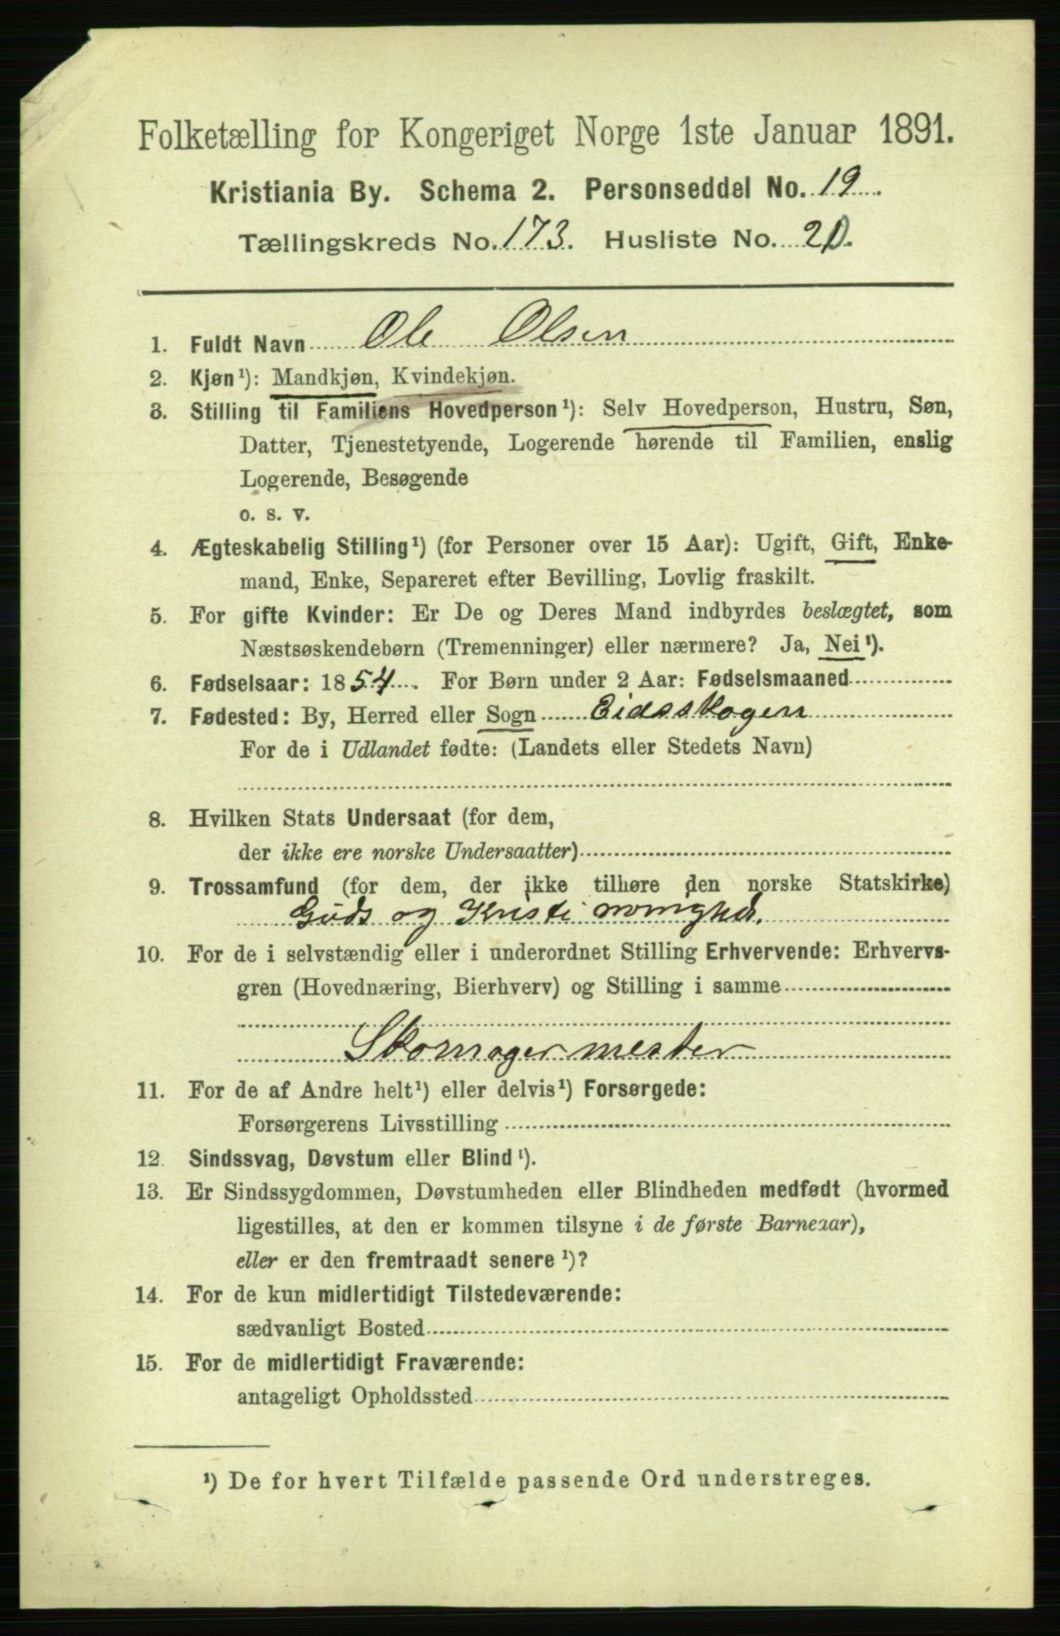 Folketælling for Kongeriget Norge 1ste Januar 1891.
Kristiania By. Schema 2. Personseddel No. 19.
Tællingskreds No. 173. Husliste No. 20.
1. Fuldt Navn Ole Olsen
2. Kjøn¹): Mandkjøn, Kvindekjøn.
3. Stilling til Familiens Hovedperson¹): Selv Hovedperson, Hustru, Søn,
Datter, Tjenestetyende, Logerende hørende til Familien, enslig
Logerende, Besøgende
o. s. v.
4. Ægteskabelig Stilling¹) (for Personer over 15 Aar): Ugift, Gift, Enke-
mand, Enke, Separeret efter Bevilling, Lovlig fraskilt.
5. For gifte Kvinder: Er De og Deres Mand indbyrdes beslægtet, som
Næstsøskendebørn (Tremenninger) eller nærmere? Ja, Nei¹).
6. Fødselsaar: 1854. For Børn under 2 Aar: Fødselsmaaned
7. Fødested: By, Herred eller Sogn Eidsskogen
For de i Udlandet fødte: (Landets eller Stedets Navn)
8. Hvilken Stats Undersaat (for dem,
der ikke ere norske Undersaatter)
9. Trossamfund (for dem, der ikke tilhøre den norske Statskirke)
Guds og Kristi
10. For de i selvstændig eller i underordnet Stilling Erhvervende: Erhvervs-
gren (Hovednæring, Bierhverv) og Stilling i samme
Skomagermester
11. For de af Andre helt¹) eller delvis¹) Forsørgede:
Forsørgerens Livsstilling
12. Sindssvag, Døvstum eller Blind¹).
13. Er Sindssygdommen, Døvstumheden eller Blindheden medfødt (hvormed
ligestilles, at den er kommen tilsyne i de første Barneaar),
eller er den fremtraadt senere¹)?
14. For de kun midlertidigt Tilstedeværende:
sædvanligt Bosted
15. For de midlertidigt Fraværende:
antageligt Opholdssted
¹) De for hvert Tilfælde passende Ord understreges.